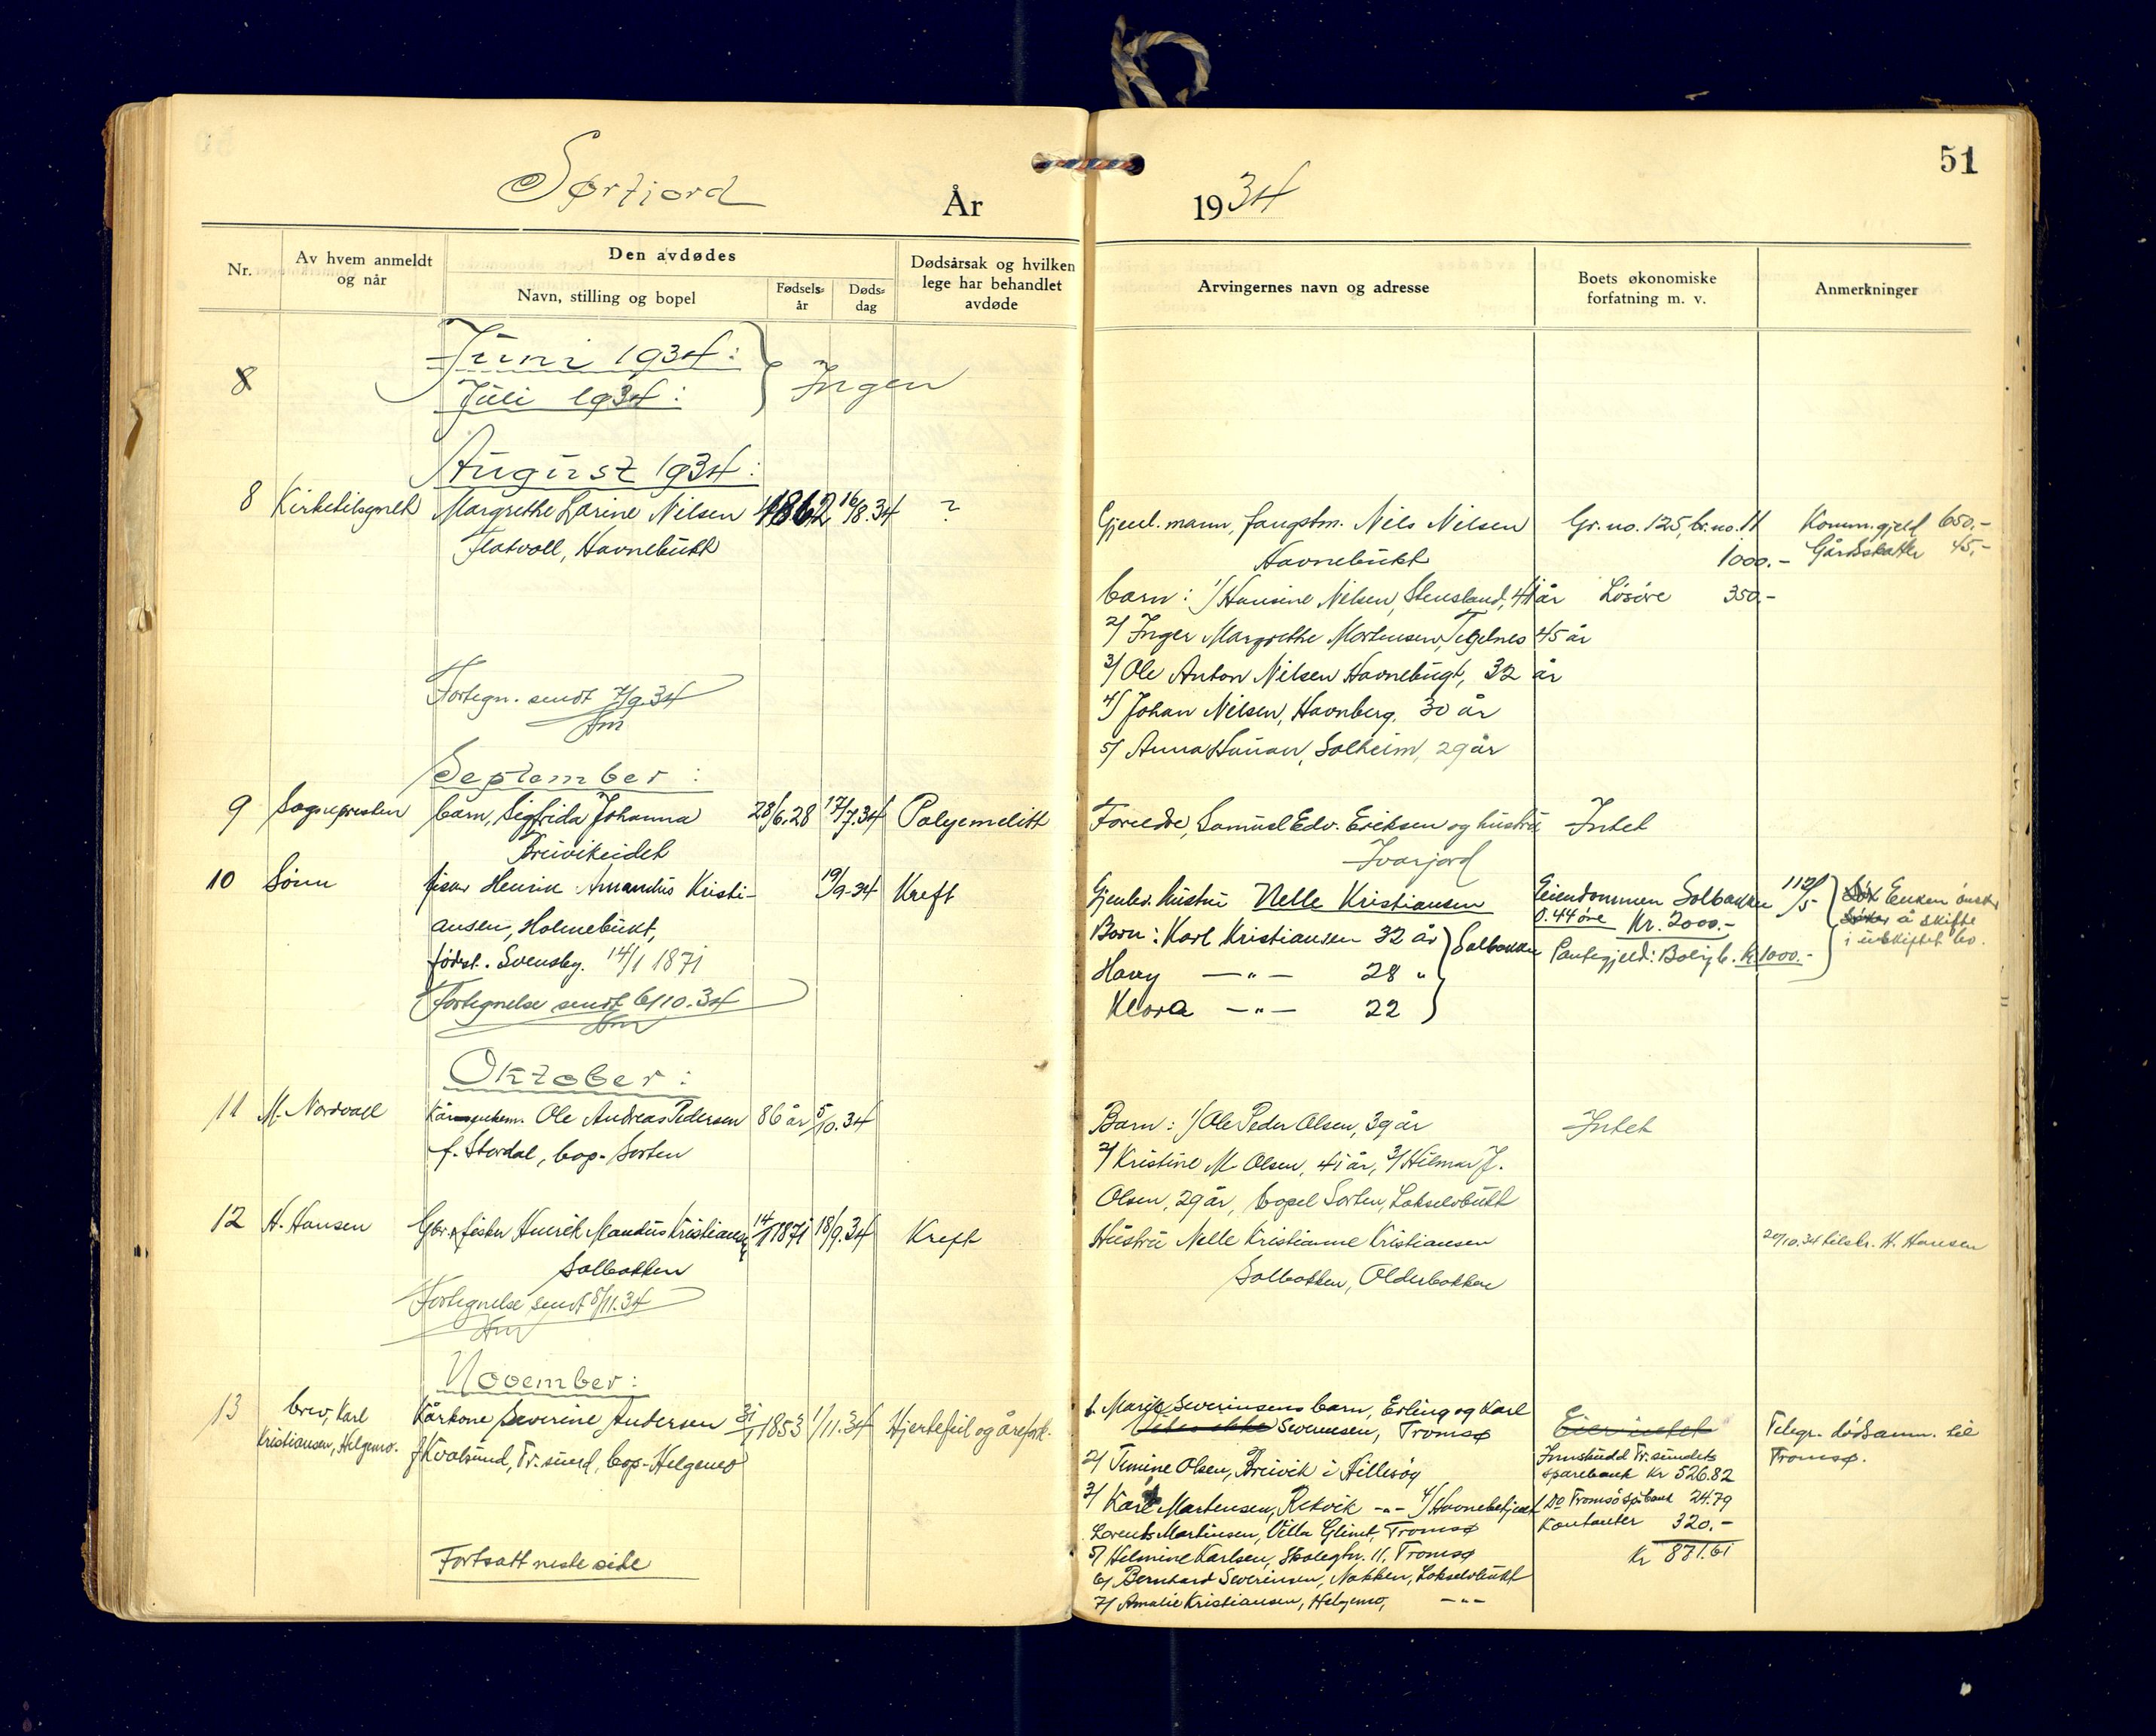 51
Sørfjord
År
1934
Nr.
Av hvem anmeldt
og når
Den avdødes
Navn, stilling og bopel
Fødsels-
år
Døds-
dag
Dødsårsak og hvilken
lege har behandlet
avdøde
Arvingernes navn og adresse
Boets økonomiske
forfatning m. v.
Anmerkninger
8
Juni 1934:
Juli 1934:
Ingen
August 1934:
8 Kirketilsynet Margrethe Larine Nilsen 1862 16/8.34 ?
Flatvoll, Havnebukt
Gjenl. mann, fangstm. Nils Nilsen
Havnebukt
barn: 1/ Hansine Nilsen, Stensland, 41 år
2/ Inger Margrethe Mortensen, Tegelnes 45 år
3/ Ole Anton Nilsen Havnebugt, 32 år
4/ Johan Nilsen, Havnberg, 30 år
5/ Anna Hansen, Solheim, 29 år
Gr. no. 125, br. no. 11
1000.-
Løsøre 350.-
Komm. gjeld 650.-
Gårdsskatter 45.-
Fortegn. sendt 7/9.34
Hm
September:
9 Sognepresten barn, Sigfrida Johanna 28/6.28 17/7.34 Polyemelitt
Breivikeidet
Foreldre, Samuel Edv. Eriksen og hustru
Ivarjord
Intet
10 Sønn fisker Henrik Amandus Kristi-
ansen, Holmebukt,
født. Svensby. 14/1 1871
19/9.34 Kreft
Gjenlev. hustru Nelle Kristiansen
Barn: Karl Kristiansen 32 år
Havy —"— 28 "
Klara —"— 22
Solbakken
Eiendommen Solbakken 112/5
0.44 øre Kr. 2000.-
Pantegjeld: Boligb. kr. 1000.-
Enken ønsker
å skifte
i uskiftet bo.
Fortegnelse sendt 6/10.34
Hm
Oktober:
11 M. Nordvall Kårmann Ole Andreas Pedersen 86 år 5/10.34
f. Stordal, bop. Sorten
Barn: 1/ Ole Peder Olsen, 39 år
2/ Kristine M Olsen, 41 år, 3/ Hilmar J.
Olsen, 29 år, bopel Sorten, Lakselvbukt
Intet
12 H. Hansen Gbr. & fisker Henrik Mandus Kristiansen 14/1 1871 18/9.34 Kreft
Solbakken
Hustru Nelle Kristianne Kristiansen
Solbakken, Olderbakken
20/10.34 tilskr. H. Hansen
Fortegnelse sendt 5/11.34
Hm
November:
13 brev, Karl
Kristiansen, Helgemo.
Kårkone Severine Andersen 31/1 1853 1/11.34 Hjertefeil og årefork.
f Kvalsund, Tr. sund, bop. Helgemo
1. Marie Severinsens barn, Erling og Karl
Severinsen, Tromsø
2/ Timine Olsen, Breivik i Hillesøy
3/ Karl Martensen, Rekvik —"— 4/ Havnebetjent
Lorents Martinsen, Villa Glimt, Tromsø
5/ Helmine Karlsen, Skolegtn. 11, Tromsø
6/ Bernhard Severinsen, Nakken, Lakselvbukt
7/ Amalie Kristiansen, Helgemo, —"—
Eier intet
Innskudd Tr. sundets
sparebank kr 526.82
Do Tromsø spbank 24.79
Kontanter 320.-
Kr 871.61
Telegr. dødsanm. til
Tromsø.
Fortsatt neste side